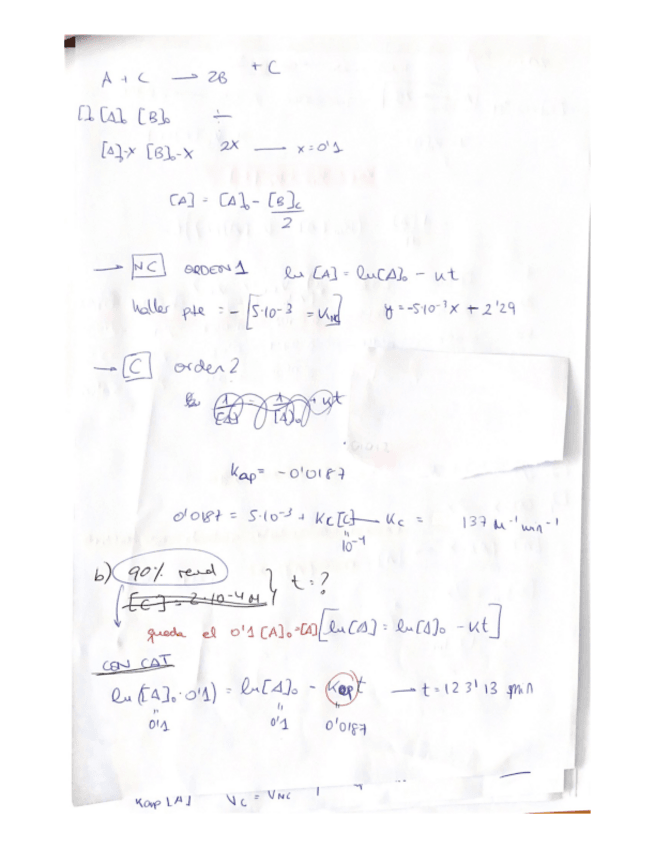 A + C → 2B + C
[]₀ [A]₀ [B]₀ ÷
[A]₀-x [B]₀-x 2x — x=0'1
[A] = [A]₀ - [B]c / 2
→ NC ORDEN 1 ln [A] = ln[A]₀ - kt
hallar pte = -[5·10-3 = KNC] y = -5·10-3x + 2'29
→ C orden 2
1/[A] 1/[A]₀ + kt
Kap = -0'0187
0'0187 = 5·10-3 + KC[C] — KC = 137 M-1 min-1
10-4
b) 90% rend } t = ?
[C] = 2·10-4 M
queda el 0'1 [A]₀=[A] [ln[A] = ln[A]₀ - kt]
CON CAT
ln ([A]₀·0'1) = ln[A]₀ - kap t → t = 123'13 min
0'1 0'1 0'0187
Kap [A] VC = VNC